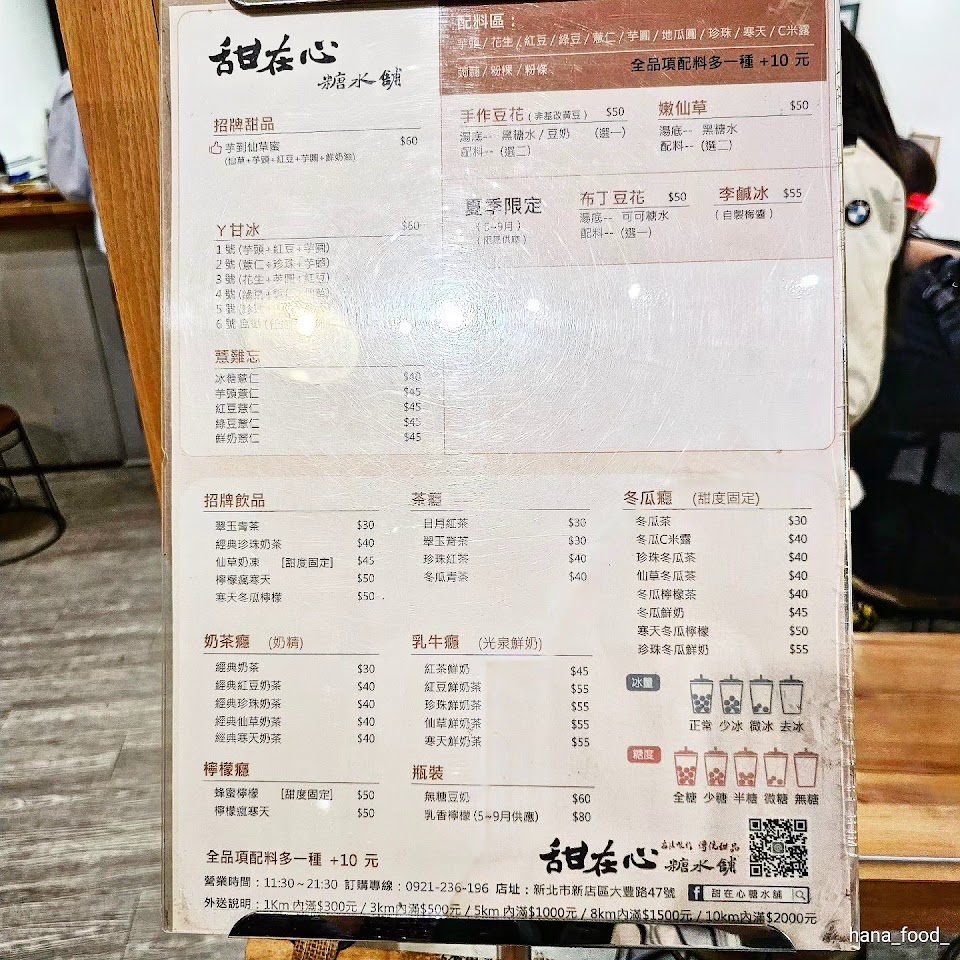 甜在心
糖水舖
招牌甜品
芋到仙草蜜 $60
(仙草+芋頭+紅豆+芋圓+鮮奶油)
ㄚ甘冰 $60
1 號 (芋頭+紅豆+芋圓)
2 號 (薏仁+珍珠+芋頭)
3 號 (花生+芋圓+紅豆)
4 號
5 號
6 號
薏難忘
冰糖薏仁 $40
芋頭薏仁 $45
紅豆薏仁 $45
綠豆薏仁 $45
鮮奶薏仁 $45
配料區：
芋頭/花生/紅豆/綠豆/薏仁/芋圓/地瓜圓/珍珠/寒天/C米露
/粉粿/粉條
全品項配料多一種 +10 元
手作豆花 (非基改黃豆) $50
湯底-- 黑糖水/豆奶 (選一)
配料-- (選二)
嫩仙草 $50
湯底-- 黑糖水
配料-- (選二)
夏季限定
(5~9月)
(限量供應)
布丁豆花 $50
湯底-- 可可糖水
配料-- (選一)
李鹹冰 $55
(自製梅醬)
招牌飲品
翠玉青茶 $30
經典珍珠奶茶 $40
仙草奶凍 [甜度固定] $45
檸檬瘋寒天 $50
寒天冬瓜檸檬 $50
茶癮
日月紅茶 $30
翠玉青茶 $30
珍珠紅茶 $40
冬瓜青茶 $40
冬瓜癮 (甜度固定)
冬瓜茶 $30
冬瓜C米露 $40
珍珠冬瓜茶 $40
仙草冬瓜茶 $40
冬瓜檸檬茶 $40
冬瓜鮮奶 $45
寒天冬瓜檸檬 $50
珍珠冬瓜鮮奶 $55
奶茶癮 (奶精)
經典奶茶 $30
經典紅豆奶茶 $40
經典珍珠奶茶 $40
經典仙草奶茶 $40
經典寒天奶茶 $40
乳牛癮 (光泉鮮奶)
紅茶鮮奶 $45
紅豆鮮奶茶 $55
珍珠鮮奶茶 $55
仙草鮮奶茶 $55
寒天鮮奶茶 $55
冰量
正常 少冰 微冰 去冰
糖度
全糖 少糖 半糖 微糖 無糖
檸檬癮
蜂蜜檸檬 [甜度固定] $50
檸檬瘋寒天 $50
瓶裝
無糖豆奶 $60
乳香檸檬 (5~9月供應) $80
全品項配料多一種 +10 元
甜在心
古法熬作 傳統甜品
糖水舖
營業時間：11:30~21:30 訂購專線：0921-236-196 店址：新北市新店區大豐路47號
f 甜在心糖水舖
外送說明：1Km 內滿$300元 / 3km內滿$500元 / 5km 內滿$1000元 / 8km內滿$1500元 / 10km內滿$2000元
hana_food_